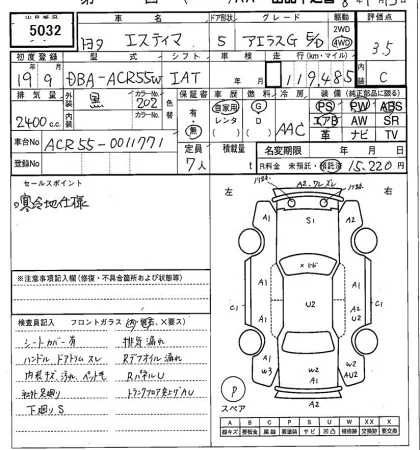 出品番号 車名 ドア形状 グレード 駆動 評価点
5032 トヨタ エスティマ 5 アエラスG 5/D 2WD 4WD 3.5
初度登録 型式 シフト 車検 走行(km・マイル) 内装
19年9月 DBA-ACR55W IAT 119,485 C
排気量 外装 黒 カラーNo. 202 色替 保証書 車歴 燃料 冷房 装備(純正部品に限る)
2400c.c. 内装 カラーNo. 有・無 自家用 レンタ D G AAC PS PW ABS
エアB AW SR
革 ナビ TV
車台No ACR55-0011771
登録No 定員 7人 積載量 t 名変期限 年 月 日
R料金 未預託・預託済 15,220円
セールスポイント
寒冷地仕様
左 右
A2
A1 S1 A1
C1 A1 U2 A1 C1
A1 A1
W2 W2
W3 A2 AU2
A2
※注意事項記入欄(修復・不具合箇所および状態)
検査員記入 フロントガラス
シートカバー有 排気漏れ
ハンドル、ドアトリムスレ Rデフオイル漏れ
内装キズ、汚れ RパネルU
下廻りS
P
スペア
A B C P S U W X XX ×
線キズ 要板金 腐蝕 要塗装 サビ 凹 補修跡 交換跡 要交換